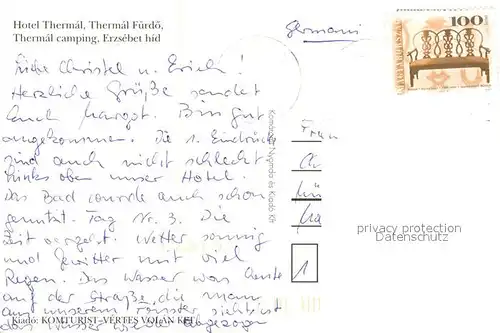 Hotel Thermál, Thermál Fürdő,
Thermál camping, Erzsébet híd
Germani
100
Liebe Christel u. Erich!
Herzliche Grüße sendet
Euch Margot. Bin gut
angekommen. Die 1. Eindrücke
sind auch nicht schlecht.
Links oben unser Hotel.
Das Bad wurde auch schon
genutzt. Tag Nr. 3. Die
Zeit vergeht. Wetter sonnig
und Gewitter mit viel
Regen. Das Wasser war heute
auf der Straße, die man
aus unserem Fenster sieht ist
das Wasser
Kiadó: KOMTURIST-VÉRTES VOLÁN KFT.
Komáromi Nyomda és Kiadó Kft
Frau
privacy protection
1